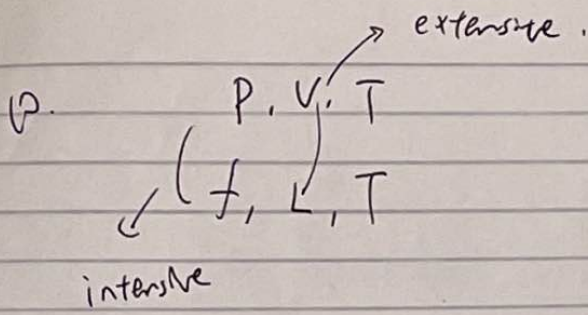 extensive.
P, V, T
f, L, T
intensive